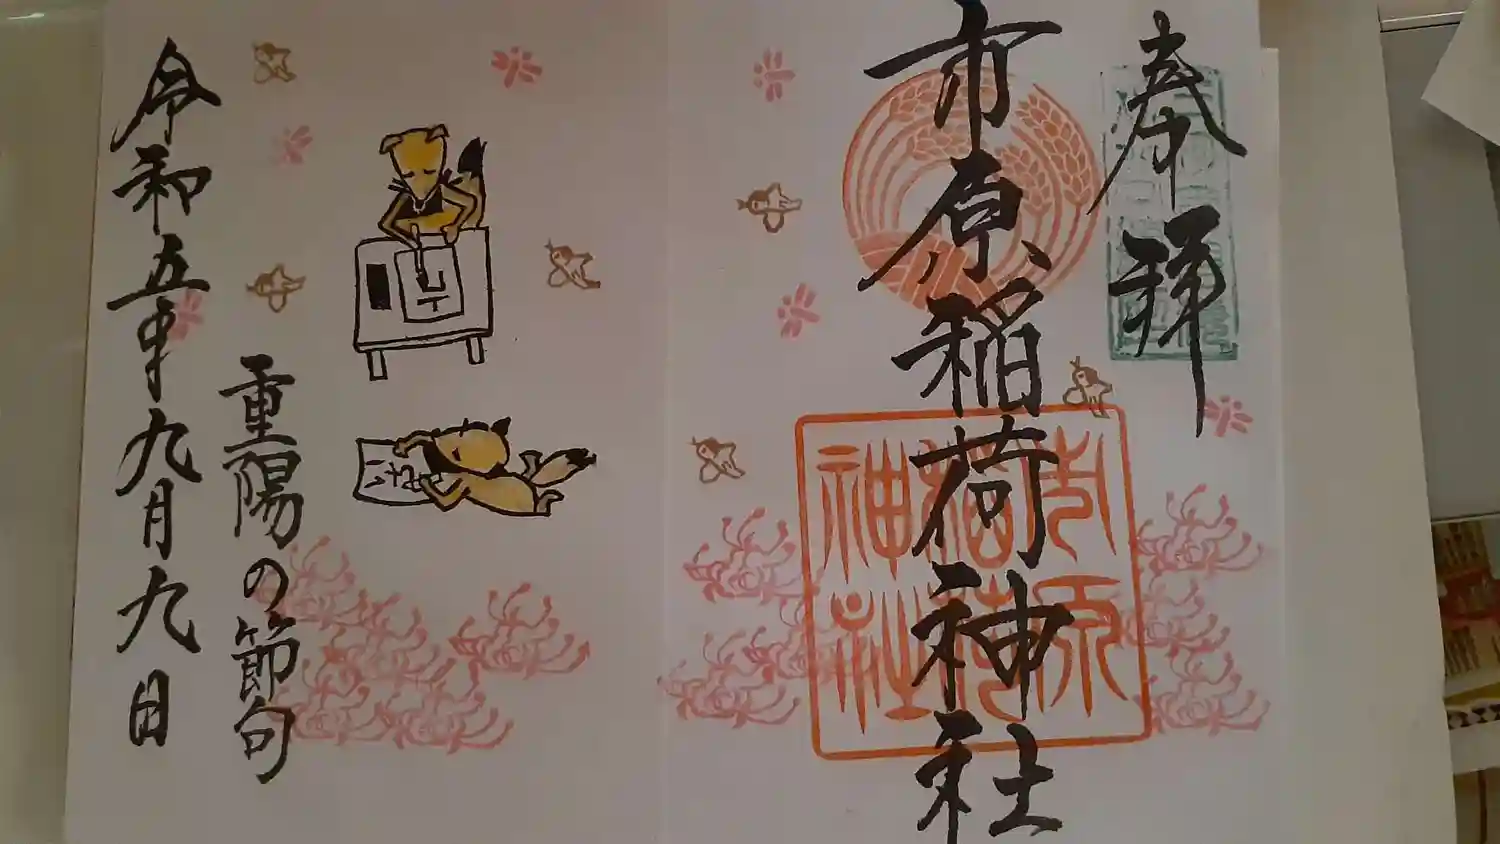 奉拝
市原稲荷神社
市原
稲荷
神社
重陽の節句
令和五年九月九日